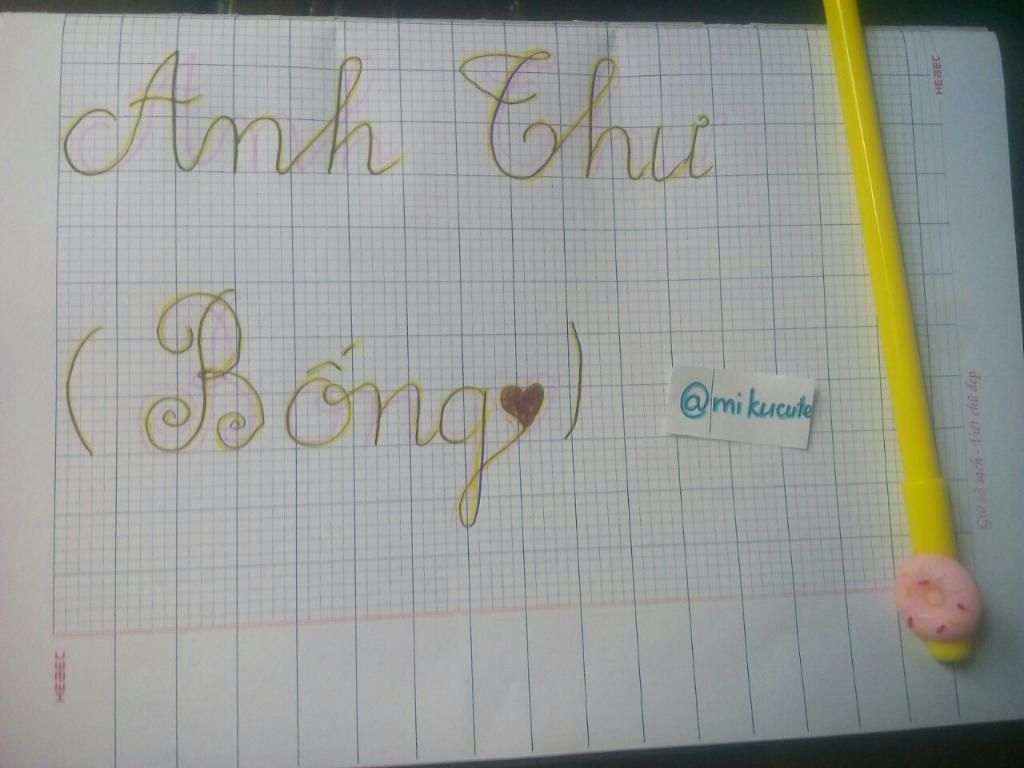 Anh Thư
(Bống♥)
@mikucute
HEBEC
Giữ vở sạch - Viết chữ đẹp
HEBEC